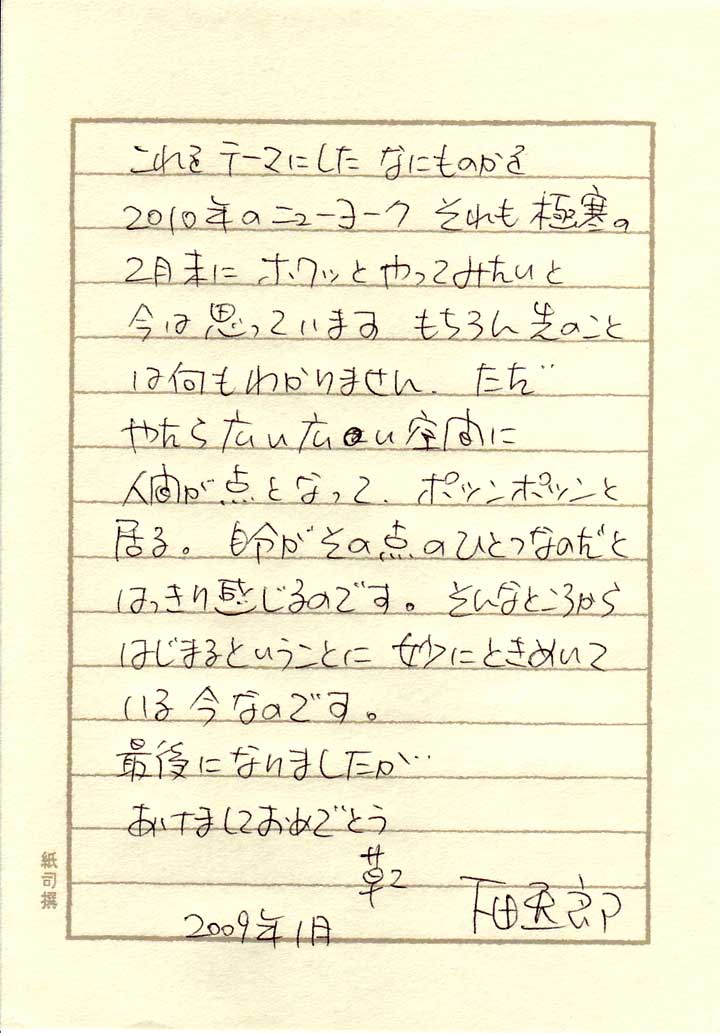 これをテーマにした なにものかを
2010年のニューヨーク それも極寒の
2月末に ホワッとやってみたいと
今は思っています もちろん先のこと
は何もわかりません. ただ
やたら広い広い空間に
人間が点となって. ポツンポツンと
居る。 自分がその点のひとつなのだと
はっきり感じるのです。 そんなところから
はじまるということに 妙にときめいて
いる今なのです。
最後になりましたが…
あけましておめでとう
草々
下田逸郎
2009年1月
紙司撰